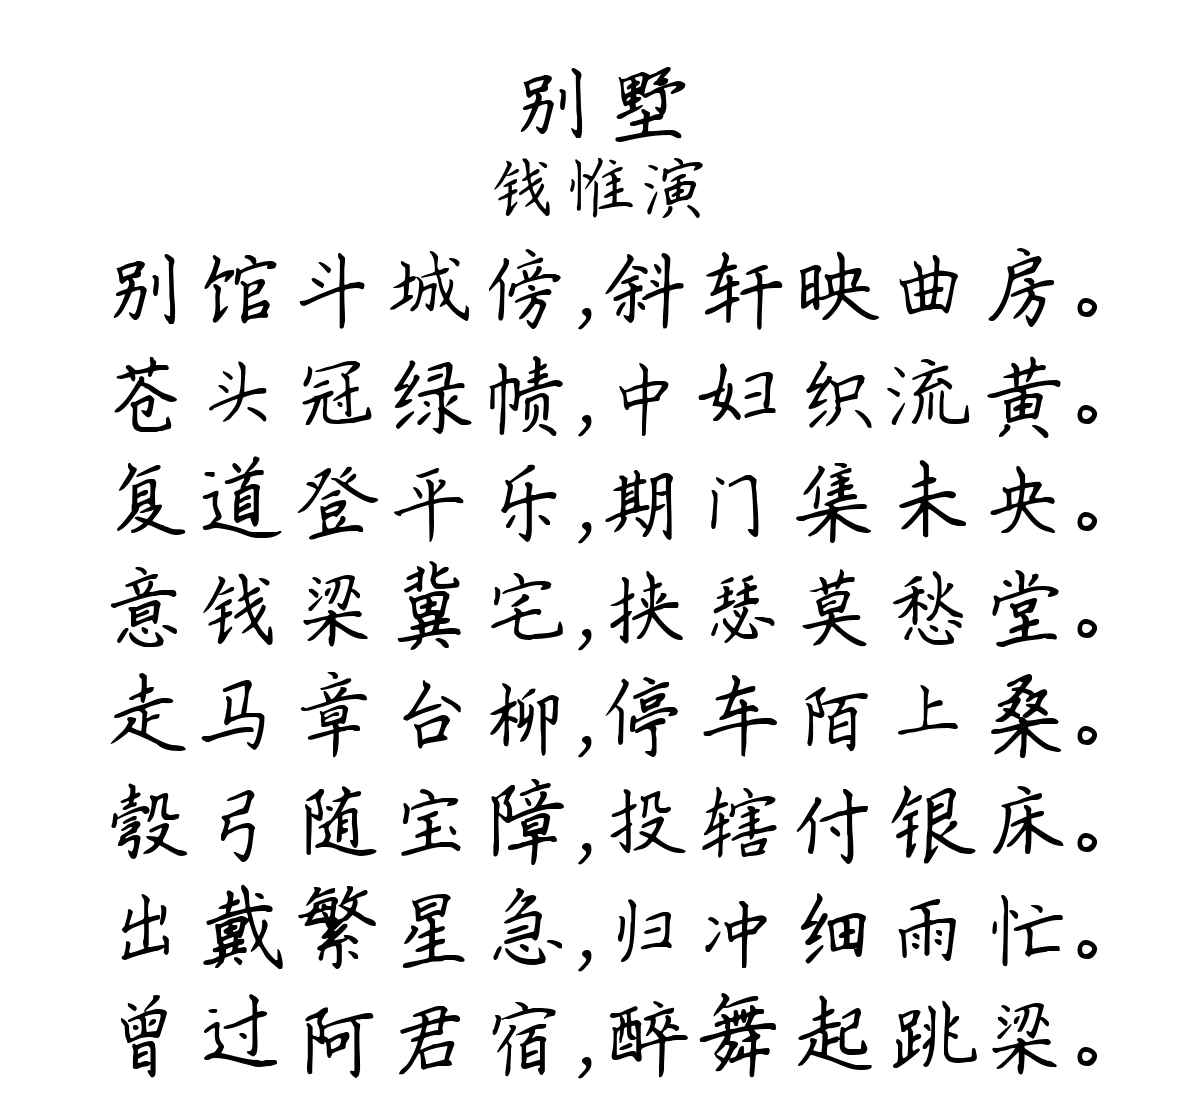 别墅
钱惟演
别馆斗城傍,斜轩映曲房。
苍头冠绿帻,中妇织流黄。
复道登平乐,期门集未央。
意钱梁冀宅,挟瑟莫愁堂。
走马章台柳,停车陌上桑。
彀弓随宝障,投辖付银床。
出戴繁星急,归冲细雨忙。
曾过阿君宿,醉舞起跳梁。